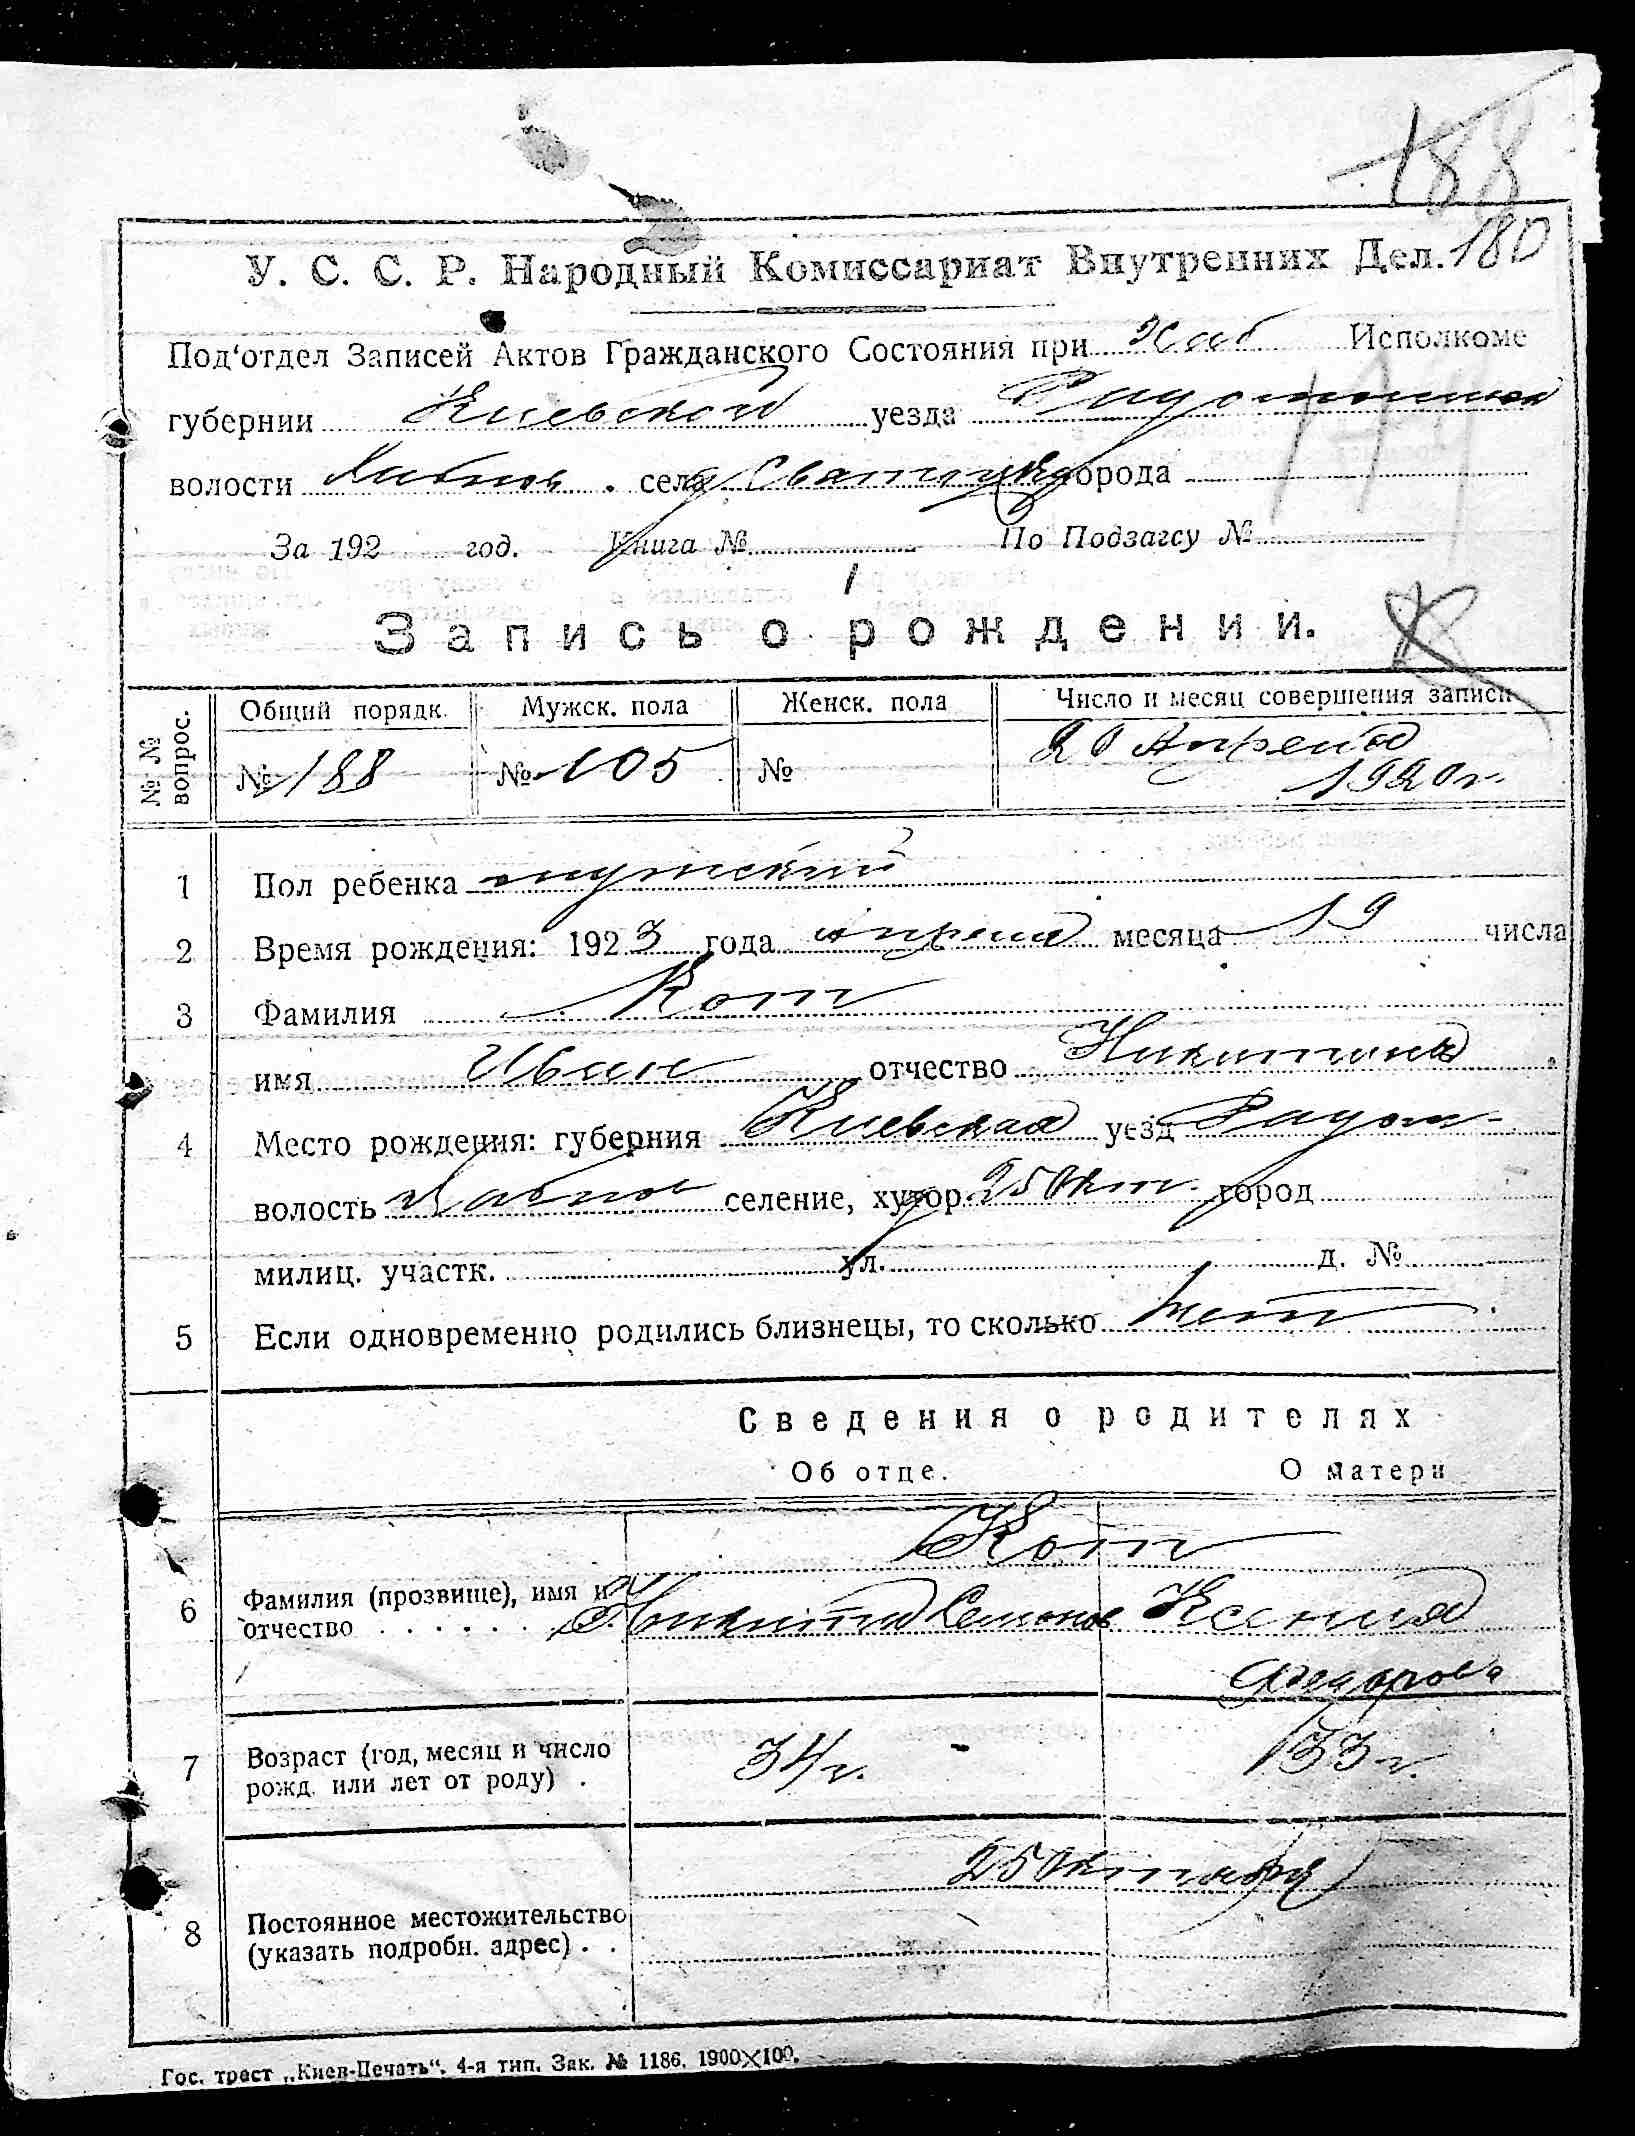 188
У. С. С. Р. Народный Комиссариат Внутренних Дел. 180
Под‘отдел Записей Актов Гражданского Состояния при Хаб Исполкоме
губернии Киевской уезда
волости Хабное. села города
За 192 год. Книга № По Подзагсу №
Запись о рождении.
№ № вопрос. Общий порядк. Мужск. пола Женск. пола Число и месяц совершения записи
№ 188 № 105 № 20 Апреля
1920 г.
1 Пол ребенка мужский
2 Время рождения: 1923 года апреля месяца 19 числа
3 Фамилия Кот
имя Иван отчество
4 Место рождения: губерния Киевская уезд Радом
волость селение, хутор 25 Окт. город
милиц. участк. ул. д. №
5 Если одновременно родились близнецы, то сколько нет
Сведения о родителях
Об отце. О матери
Кот
6 Фамилия (прозвище), имя и
отчество . . . . . . Никита Семенов Ксения
Федорова
7 Возраст (год, месяц и число
рожд. или лет от роду) . 34 г. 33 г.
25 Октября
8 Постоянное местожительство
(указать подробн. адрес) . .
Гос. трест „Киев-Печать“. 4-я тип. Зак. № 1186. 1900×100.